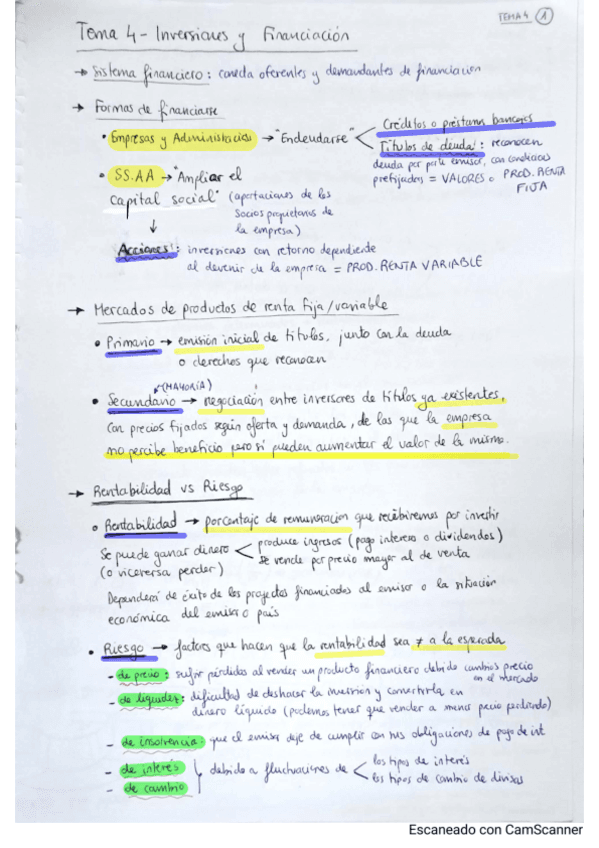 TEMA 4 1
Tema 4 - Inversiones y Financiación
→ Sistema financiero: conecta oferentes y demandantes de financiación
→ Formas de financiarse
• Empresas y Administración → "Endeudarse" < Créditos o préstamos bancarios
Títulos de deuda: reconocen
deuda por parte emisor, con condiciones
prefijadas = VALORES o PROD. RENTA
FIJA
• SS.AA → "Ampliar el
capital social" (aportaciones de los
socios propietarios de
la empresa)
↓
Acciones: inversiones con retorno dependiente
al devenir de la empresa = PROD. RENTA VARIABLE
→ Mercados de productos de renta fija/variable
• Primario → emisión inicial de títulos, junto con la deuda
o derechos que reconocen
(MAYORÍA)
• Secundario → negociación entre inversores de títulos ya existentes,
con precios fijados según oferta y demanda, de las que la empresa
no percibe beneficio pero sí pueden aumentar el valor de la misma.
→ Rentabilidad vs Riesgo
• Rentabilidad → porcentaje de remuneración que recibiremos por invertir
Se puede ganar dinero < produce ingresos (pago intereses o dividendos)
(o viceversa perder) se vende por precio mayor al de venta
Dependerá de éxito de los proyectos financiados al emisor o la situación
económica del emisor o país
• Riesgo → factores que hacen que la rentabilidad sea ≠ a la esperada
- de precio: sufrir pérdidas al vender un producto financiero debido cambios precio
en el mercado
- de liquidez: dificultad de deshacer la inversión y convertirla en
dinero líquido (podemos tener que vender a menor precio perdiendo)
- de insolvencia: que el emisor deje de cumplir con sus obligaciones de pago de int.
- de interés } debido a fluctuaciones de < los tipos de interés
- de cambio los tipos de cambio de divisas
Escaneado con CamScanner